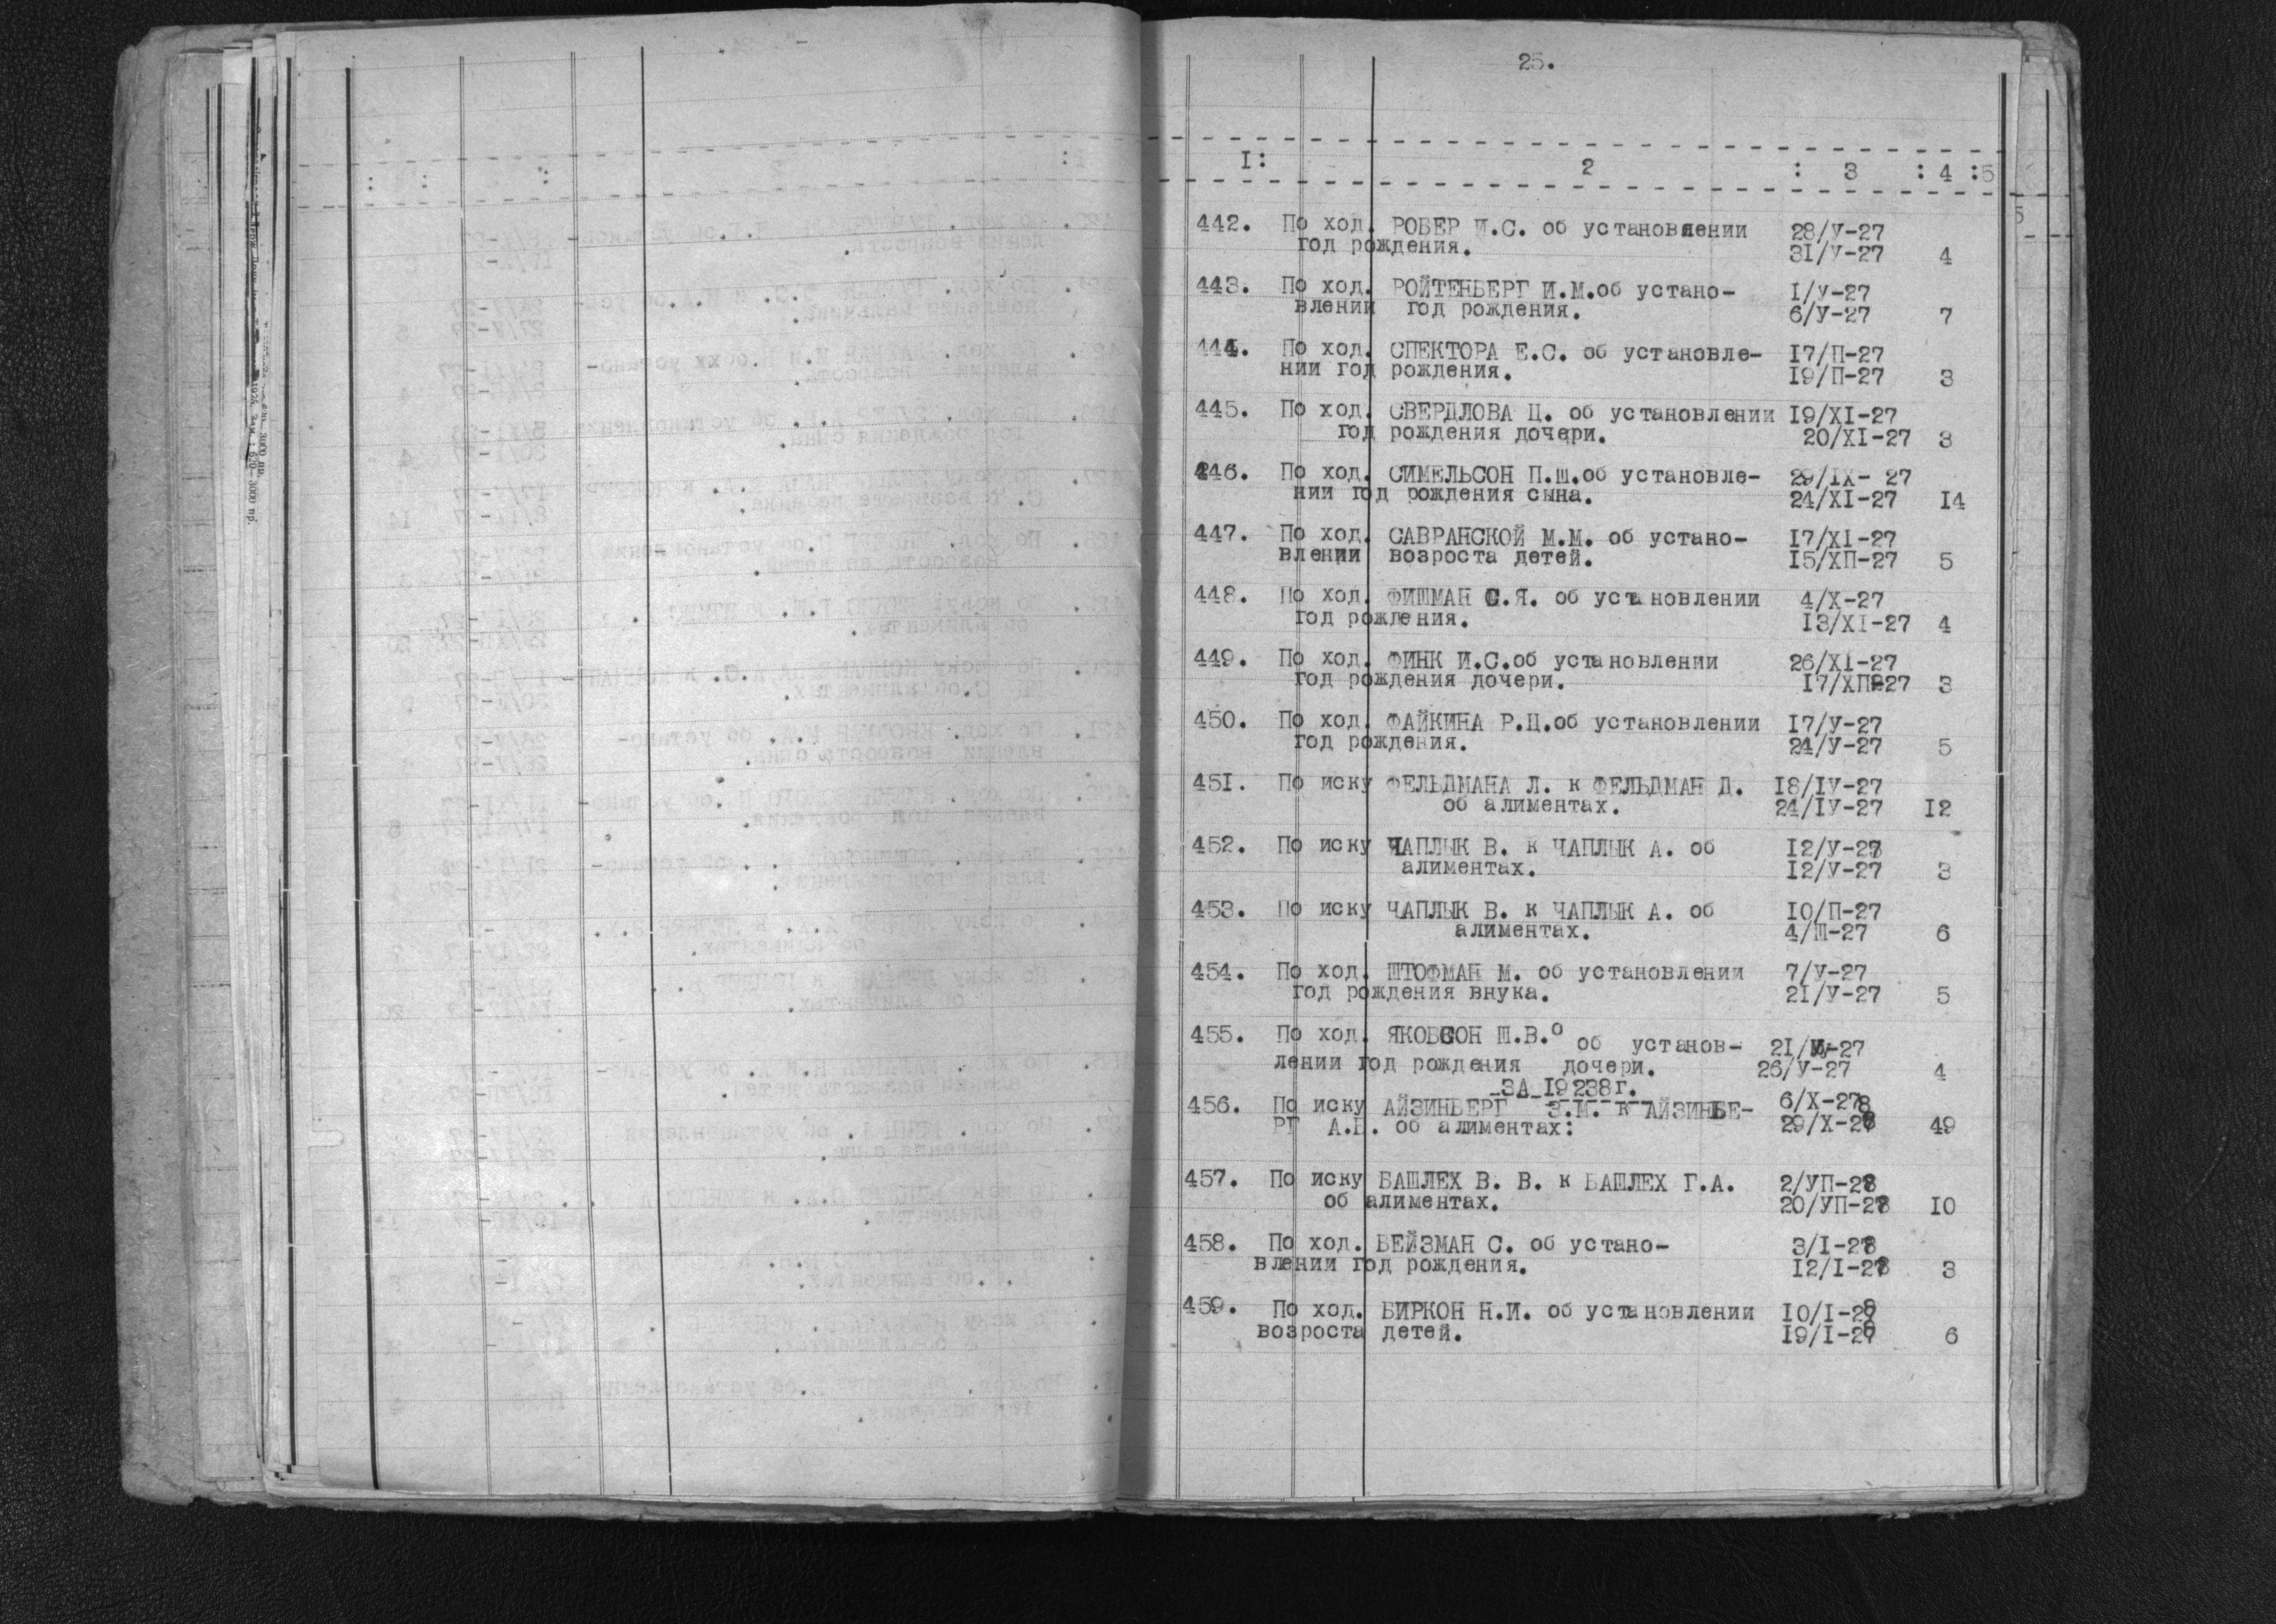 25.
I: 2 : 3 : 4 :5
442. По ход. РОБЕР И.С. об установлении 28/У-27
год рождения. 31/У-27 4
443. По ход. РОЙТЕНБЕРГ И.М.об устано- I/У-27
влении год рождения. 6/У-27 7
444. По ход. СПЕКТОРА Е.С. об установле- I7/П-27
нии год рождения. I9/П-27 3
445. По ход. СВЕРДЛОВА Ц. об установлении I9/XI-27
год рождения дочери. 20/XI-27 3
446. По ход. СИМЕЛЬСОН П.Ш.об установле- 29/IX- 27
нии год рождения сына. 24/XI-27 I4
447. По ход. САВРАНСКОЙ М.М. об устано- I7/XI-27
влении возроста детей. I5/ХП-27 5
448. По ход. ФИШМАН С.Я. об установлении 4/X-27
год рождения. I3/XI-27 4
449. По ход. ФИНК И.С.об установлении 26/XI-27
год рождения дочери. I7/ХП-27 3
450. По ход. ФАЙКИНА Р.Ц.об установлении I7/У-27
год рождения. 24/У-27 5
45I. По иску ФЕЛЬДМАНА Л. к ФЕЛЬДМАН Д. I8/IУ-27
об алиментах. 24/IУ-27 I2
452. По иску ЧАПЛЫК В. к ЧАПЛЫК А. об I2/У-27
алиментах. I2/У-27 3
453. По иску ЧАПЛЫК В. к ЧАПЛЫК А. об I0/П-27
алиментах. 4/Ш-27 6
454. По ход. ШТОФМАН М. об установлении 7/У-27
год рождения внука. 2I/У-27 5
455. По ход. ЯКОБСОН Ш.В. об установ- 2I/У-27
лении год рождения дочери. 26/У-27 4
ЗА I928 г.
456. По иску АЙЗИНБЕРГ З.М. к АЙЗИНБЕ- 6/X-28
РГ А.В. об алиментах: 29/X-28 49
457. По иску БАШЛЕХ В. В. к БАШЛЕХ Г.А. 2/УП-28
об алиментах. 20/УП-28 I0
458. По ход. БЕЙЗМАН С. об устано- 3/I-28
влении год рождения. I2/I-28 3
459. По ход. БИРКОН Н.И. об установлении I0/I-28
возроста детей. I9/I-28 6